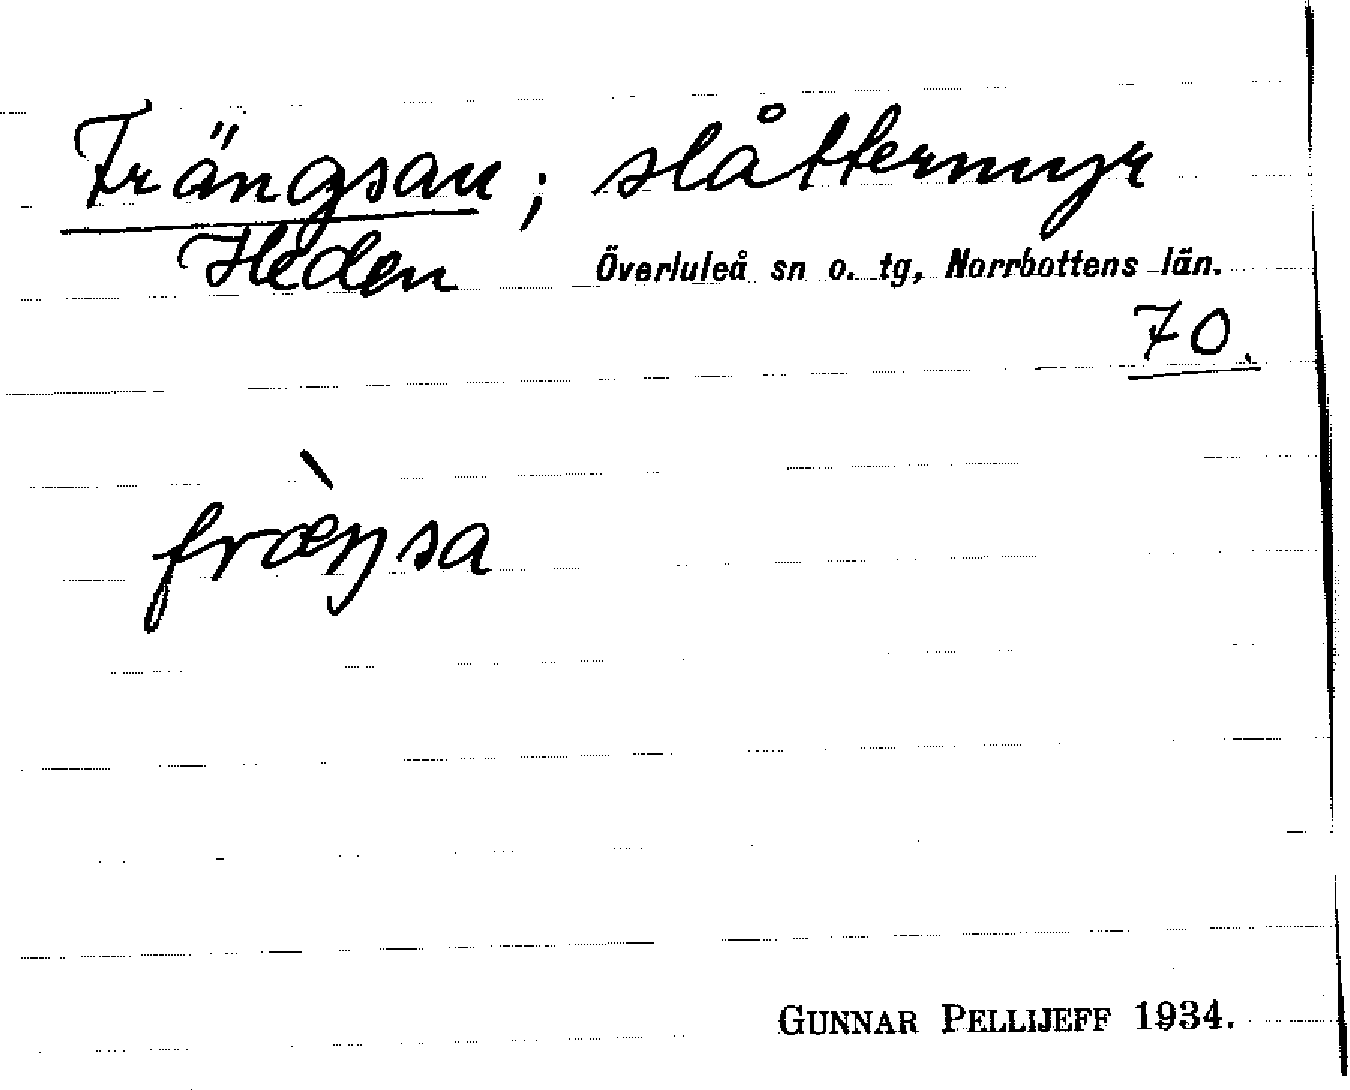 Frängsan; slåttermyr
Heden Överluleå sn o. tg, Norrbottens län.
70.
fræ̀ŋsa
GUNNAR PELLIJEFF 1934.